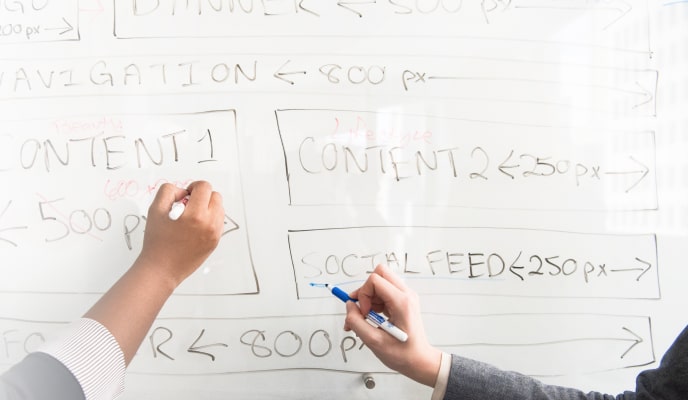 BANNER ← 500 px →
00 px →
NAVIGATION ← 800 px →
CONTENT 1
← 500 px →
CONTENT 2 ← 250 px →
SOCIAL FEED ← 250 px →
← 800 px →